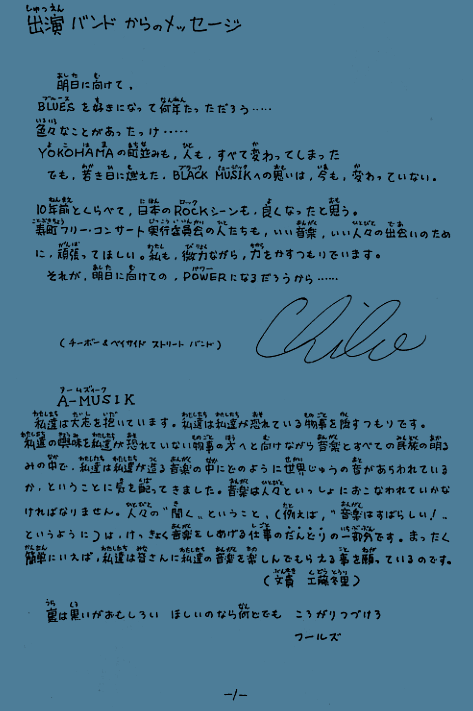 出演バンドからのメッセージ
明日に向けて，
BLUESを好きになって何年たっただろう……
色々なことがあったっけ……
YOKOHAMAの町並みも，人も，すべて変わってしまった
でも，若き日に燃えた，BLACK MUSIKへの思いは，今も，変わっていない。
10年前とくらべて，日本のROCKシーンも，良くなったと思う。
寿町フリー・コンサート実行委員会の人たちも，いい音楽，いい人々の出会いのため
に，頑張ってほしい。私も，微力ながら，力をかすつもりでいます。
それが，明日に向けての，POWERになるだろうから……
(チーボー&ベイサイド ストリート バンド)
Chibo
A-MUSIK
私達は大志を抱いています。私達は私達が恐れている物事を隠すつもりです。
私達の興味を私達が恐れていない物事の方へと向けながら音楽とすべての民族の明る
みの中で，私達は私達が造る音楽の中にどのように世界じゅうの音があらわれている
か，ということに気を配ってきました。音楽は人々といっしょにおこなわれていかな
ければなりません。人々の"聞く"ということ，(例えば，"音楽はすばらしい！"
というように)は，けっきょく音楽をしあげる仕事のだんどりの一部分です。まったく
簡単にいえば，私達は皆さんに私達の音楽を楽しんでもらえる事を願っているのです。
(文責 工藤冬里)
裏は黒いがおもしろい ほしいのなら何とでも ころがりつづけろ
フールズ
-1-